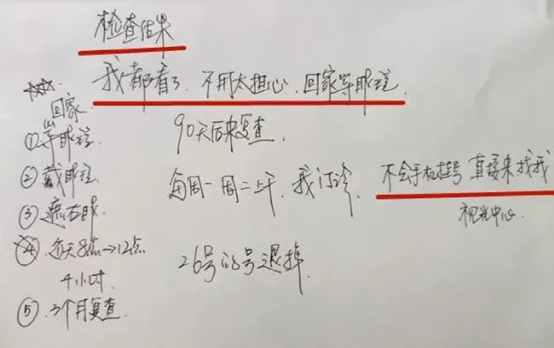 检查结果
我都看了.不用太担心.回家等眼镜.
回家
①等眼镜.
②戴眼镜
③遮右眼.
④每天8点→12点
4小时.
⑤.3个月复查.
90天后来复查.
每周一周二上午.我门诊.
不会手机挂号直接来找我
视光中心.
26号的号退掉.